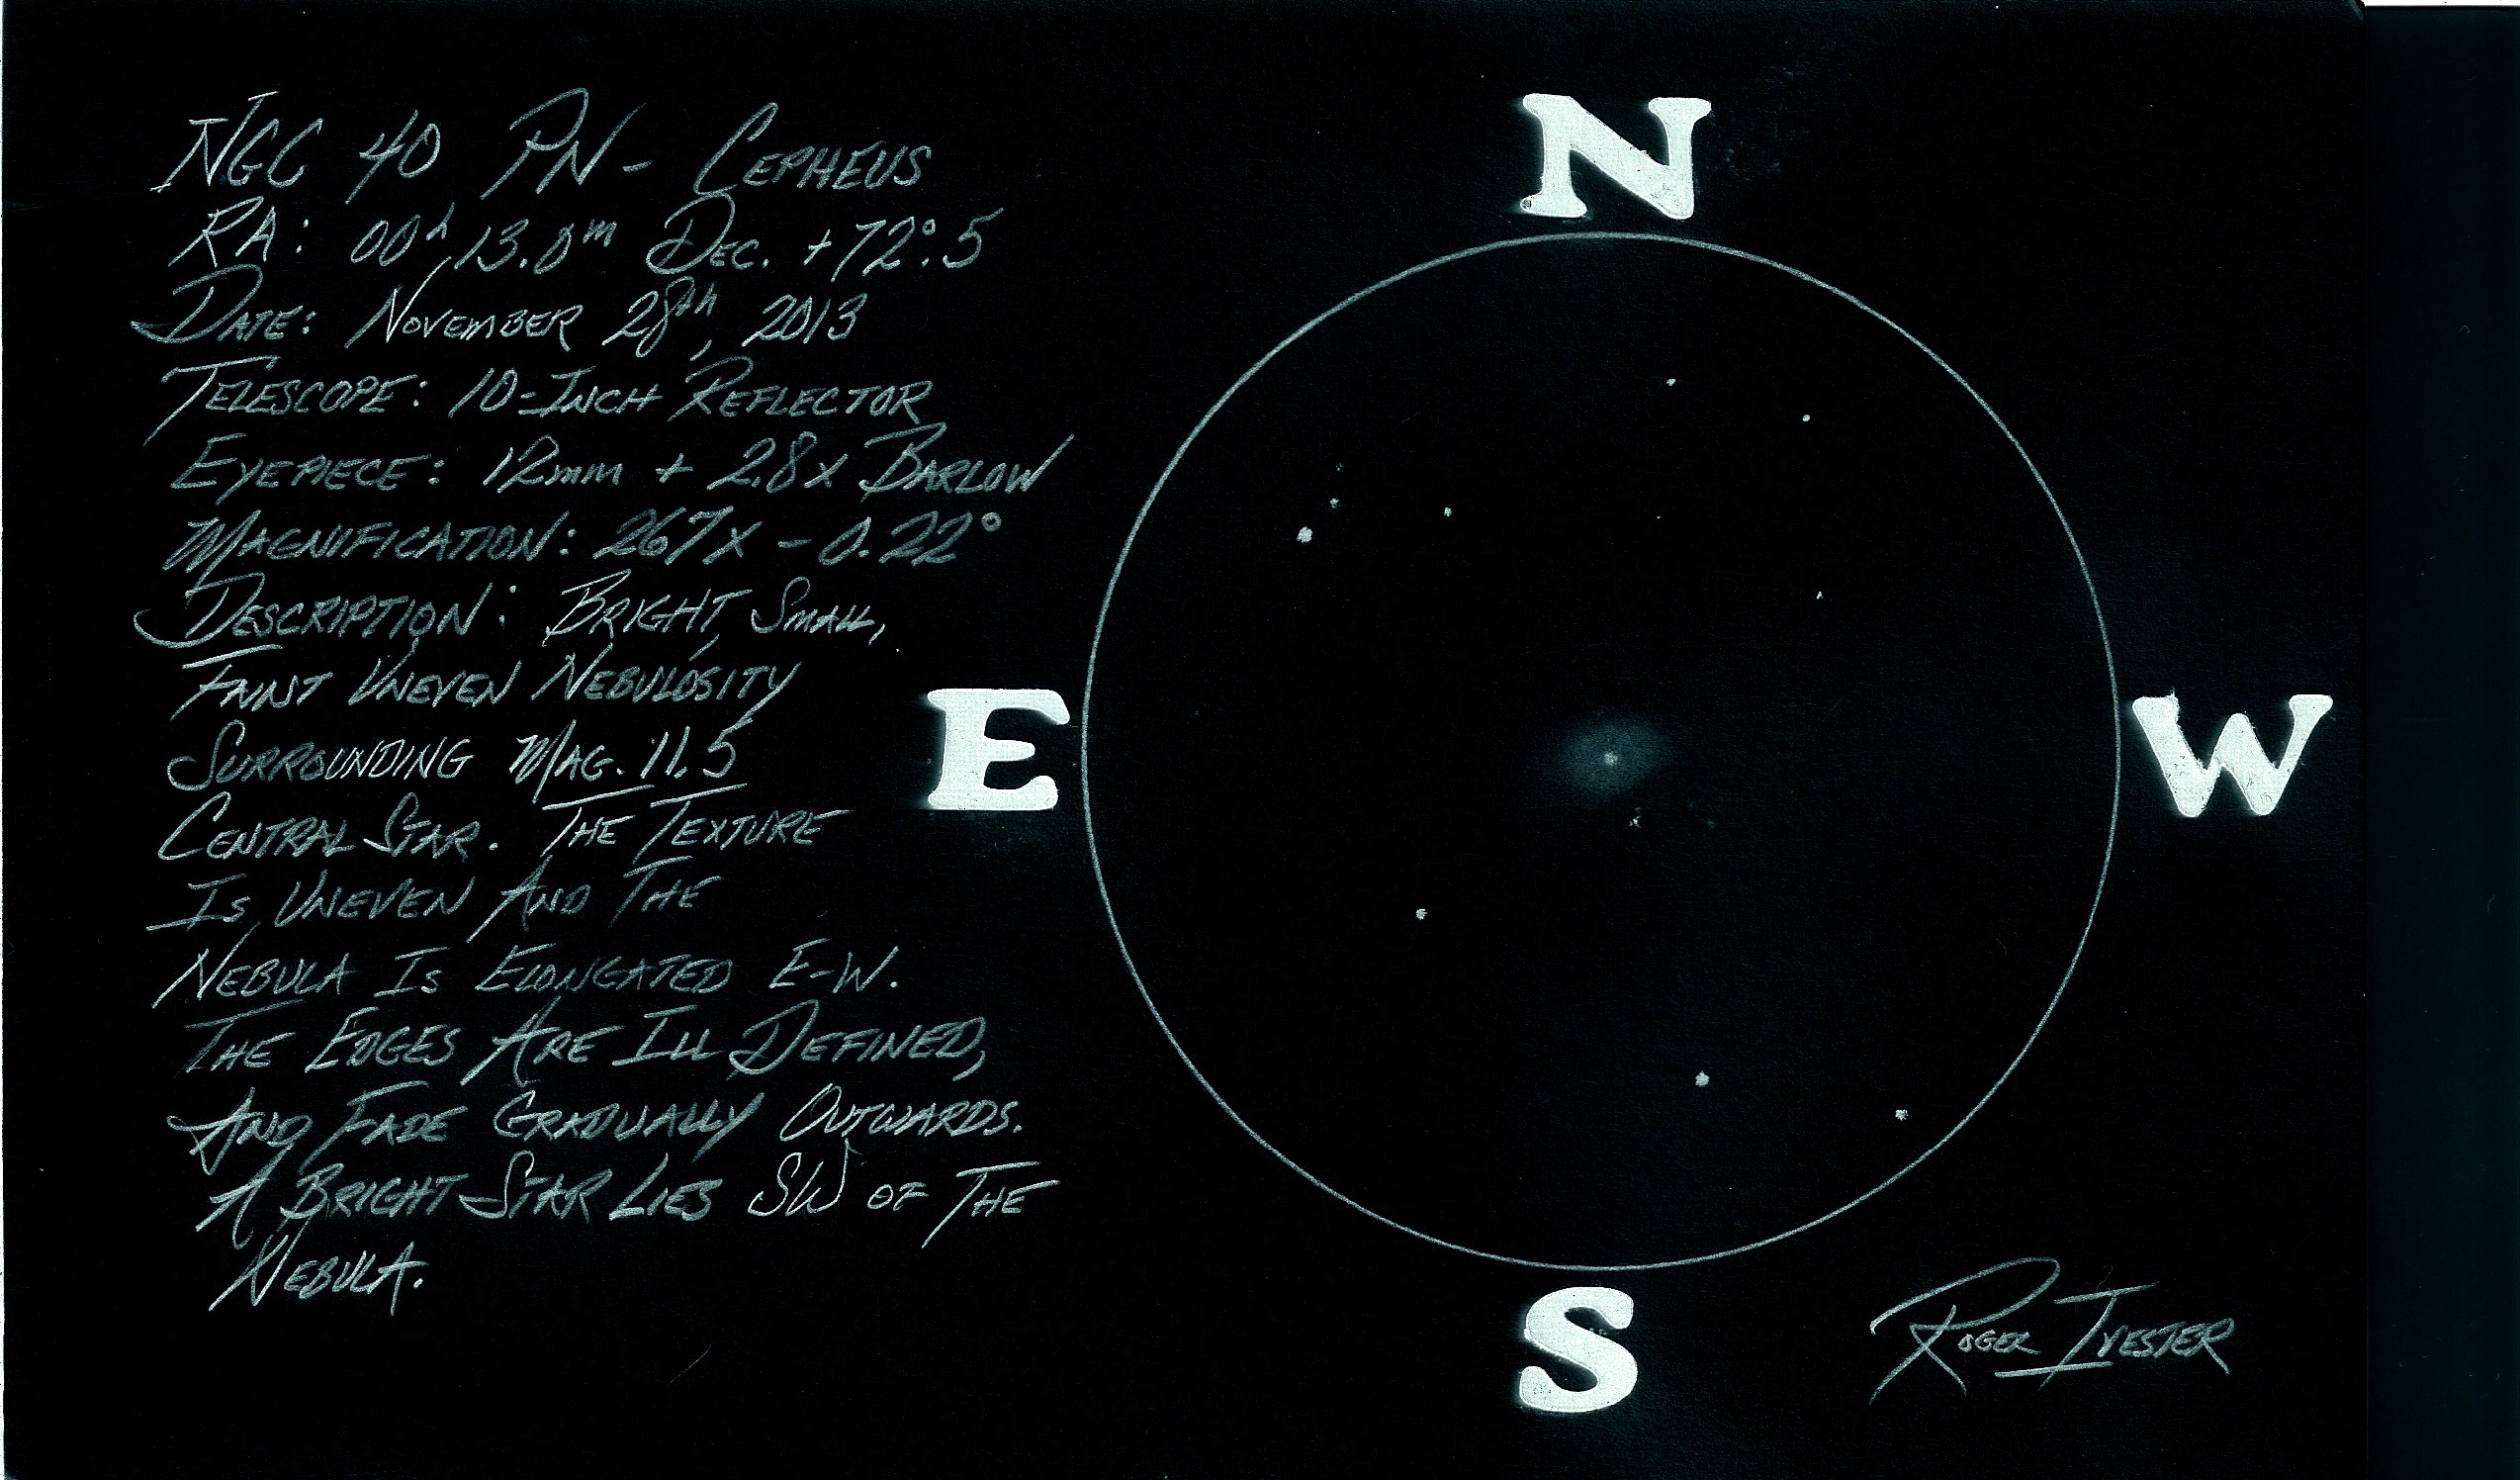 NGC 40 PN - CEPHEUS
RA: 00h 13.0m DEC. +72°.5
DATE: NOVEMBER 28th, 2013
TELESCOPE: 10-INCH REFLECTOR
EYEPIECE: 12mm + 2.8x BARLOW
MAGNIFICATION: 267X - 0.22°
DESCRIPTION: BRIGHT, SMALL,
FAINT UNEVEN NEBULOSITY
SURROUNDING MAG. 11.5
CENTRAL STAR. THE TEXTURE
IS UNEVEN AND THE
NEBULA IS ELONGATED E-W.
THE EDGES ARE ILL DEFINED,
AND FADE GRADUALLY OUTWARDS.
A BRIGHT STAR LIES SW OF THE
NEBULA.
N
E
W
S
ROGER IVESTER